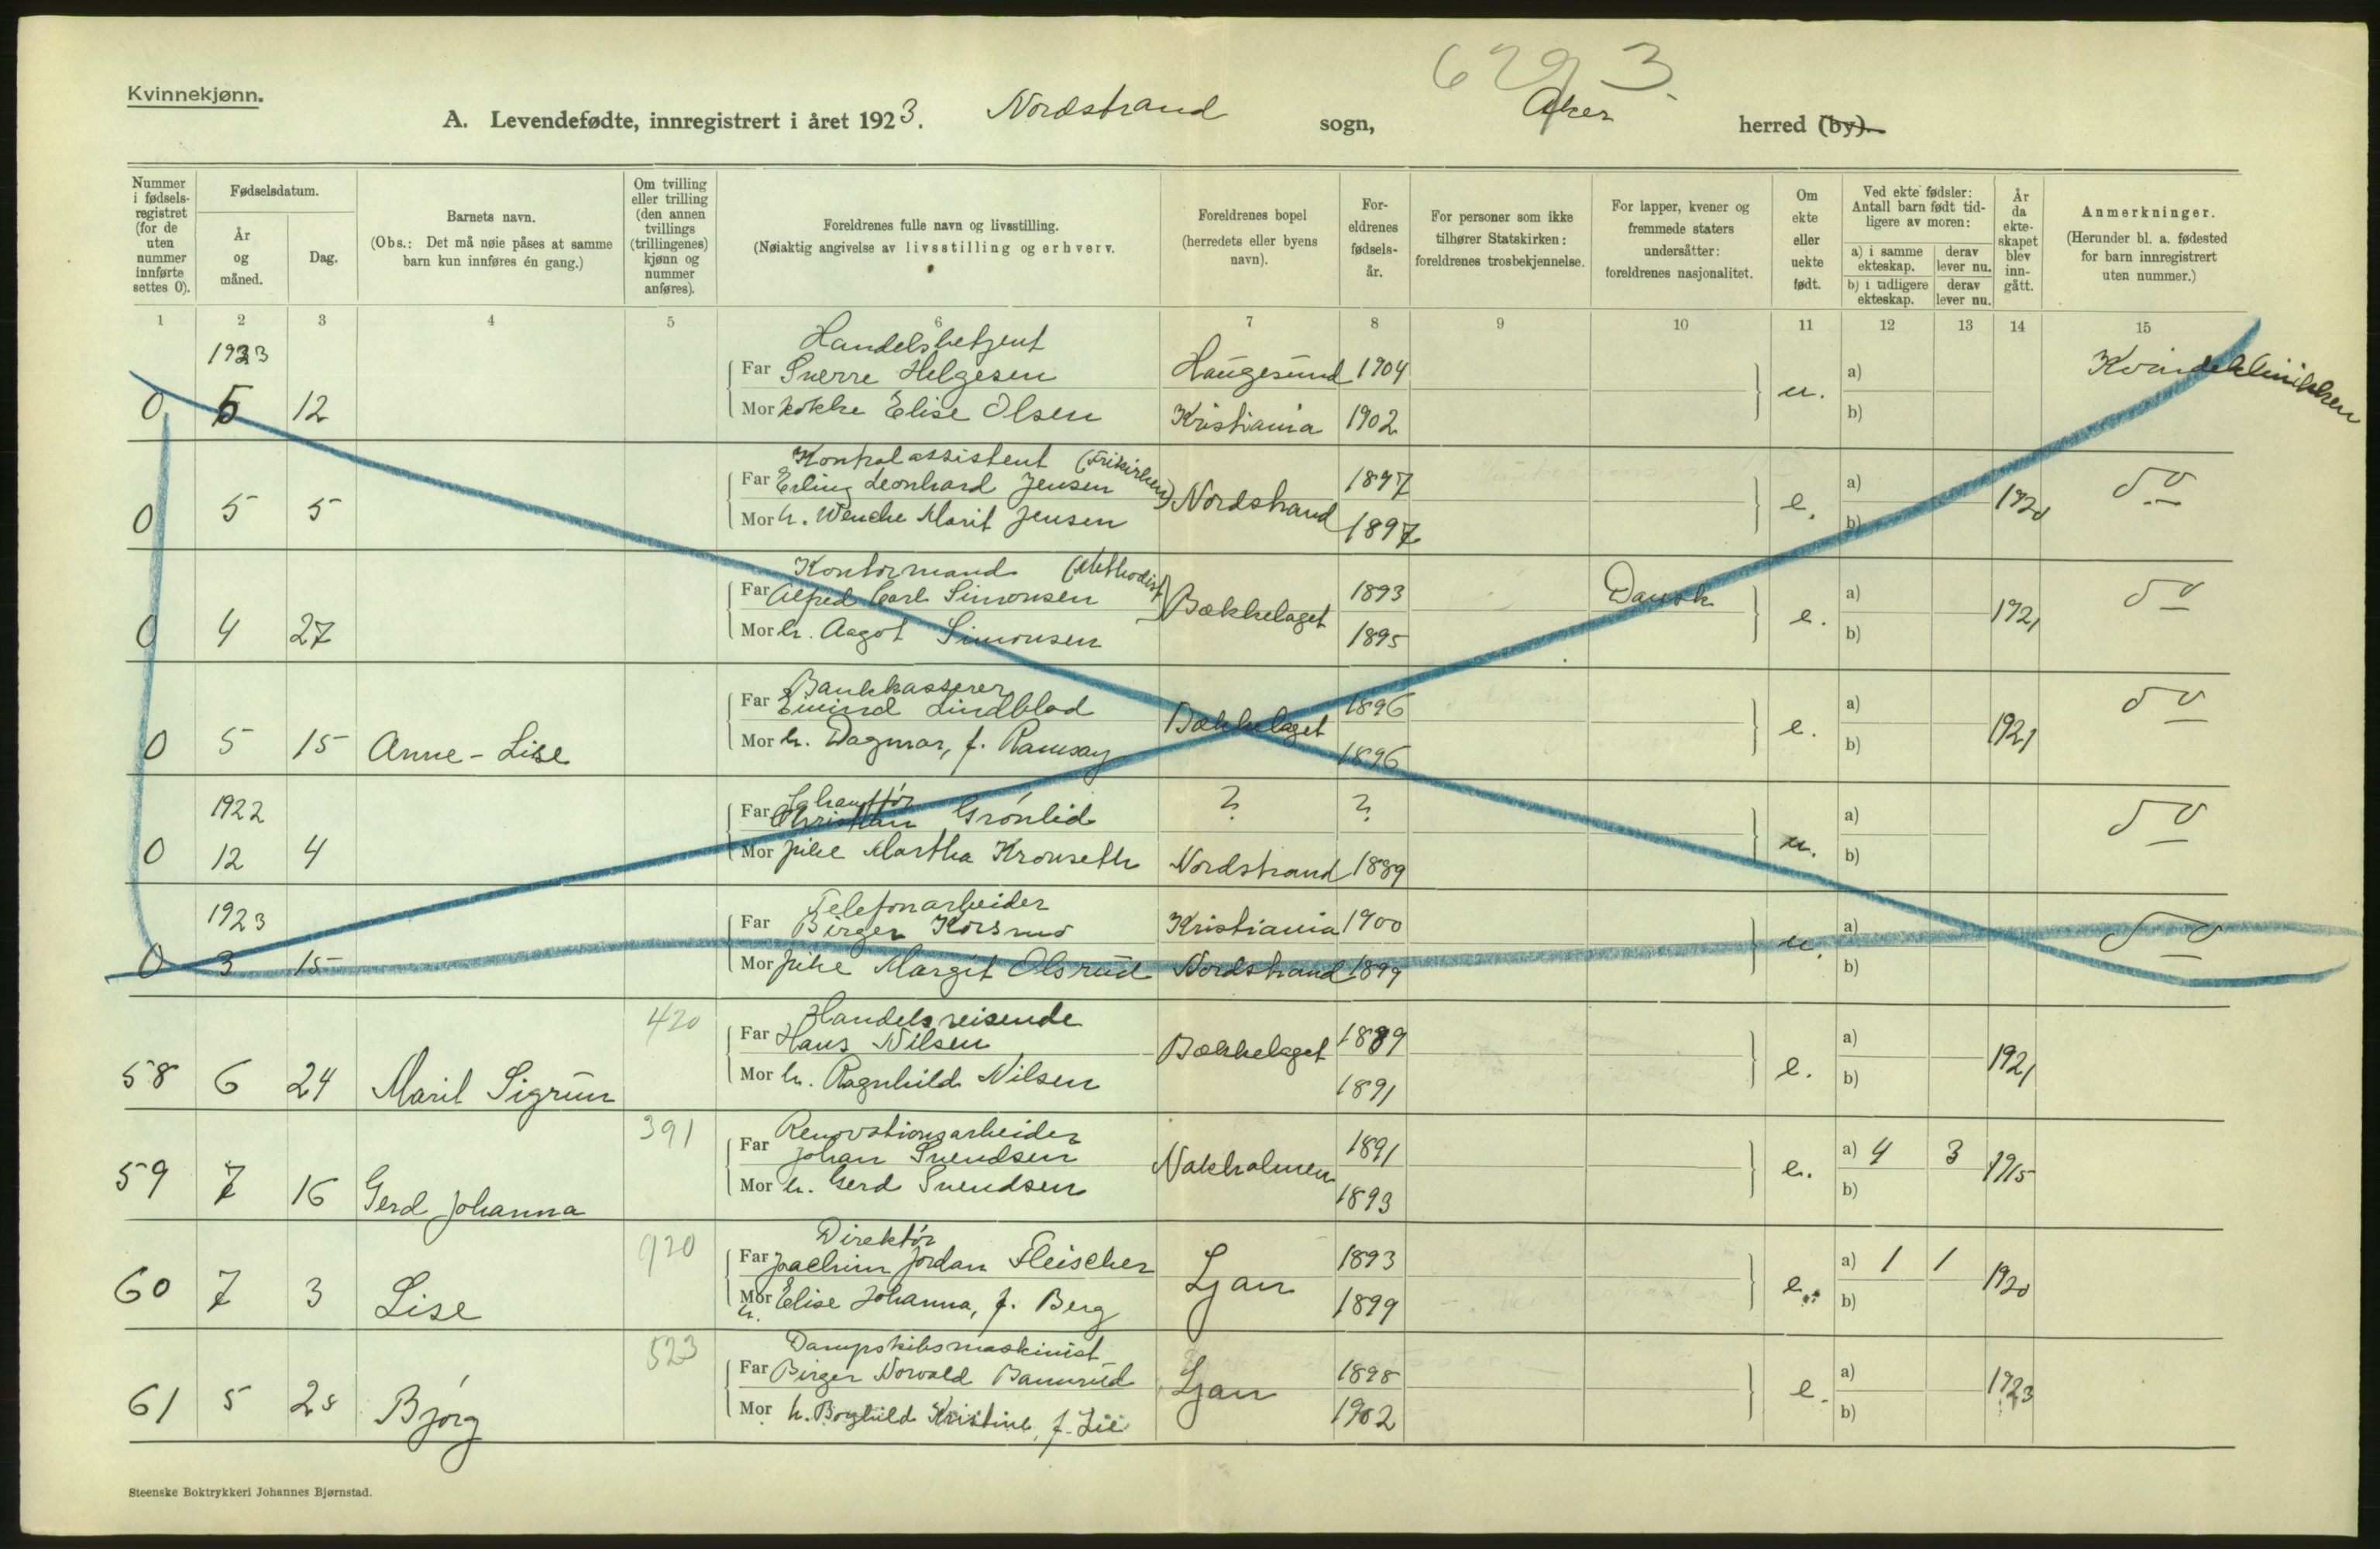 6293.
Kvinnekjønn.
A. Levendefødte, innregistrert i året 1923. Nordstrand sogn, Aker herred (by).
Nummer i fødselsregistret (for de uten nummer innførte settes 0).
Fødselsdatum.
År og måned.
Dag.
Barnets navn.
(Obs.: Det må nøie påses at samme barn kun innføres én gang.)
Om tvilling eller trilling (den annen tvillings (trillingenes) kjønn og nummer anføres).
Foreldrenes fulle navn og livsstilling.
(Nøiaktig angivelse av livsstilling og erhverv.
Foreldrenes bopel (herredets eller byens navn).
Foreldrenes fødselsår.
For personer som ikke tilhører Statskirken: foreldrenes trosbekjennelse.
For lapper, kvener og fremmede staters undersåtter: foreldrenes nasjonalitet.
Om ekte eller uekte født.
Ved ekte fødsler: Antall barn født tidligere av moren:
a) i samme ekteskap. derav lever nu.
b) i tidligere ekteskap. derav lever nu.
År da ekteskapet blev inngått.
Anmerkninger.
(Herunder bl. a. fødested for barn innregistrert uten nummer.)
1 2 3 4 5 6 7 8 9 10 11 12 13 14 15
1923 Handelsbetjent
Far Sverre Helgesen Haugesund 1904 a) Kvindeklinikken
0 5 12 Mor kokke Elise Olsen Kristiania 1902 u. b)
Kontorassistent (Frikirken)
Far Erling Leonhard Jensen Nordstrand 1897 a)
0 5 5 Mor h. Wenche Marit Jensen 1897 e. b) 1920 do
Kontormand (Methodist)
Far Alfred Carl Simonsen Bækkelaget 1893 Dansk a)
0 4 27 Mor h. Aagot Simonsen 1895 e. b) 1921 do
Bankkasserer
Far Eivind Lindblad Bækkelaget 1896 a)
0 5 15 Anne-Lise Mor h. Dagmar, f. Ramsay 1896 e. b) 1921 do
1922
Far Christian Grönlid ? ? a)
0 12 4 Mor pike Martha Kronseth Nordstrand 1889 u. b) do
1923 Telefonarbeider
Far Birger Korsmo Kristiania 1900 a)
0 3 15 Mor pike Margit Olsrud Nordstrand 1899 u. b) do
420 Handelsreisende
Far Hans Nilsen Bækkelaget 1889 a)
58 6 24 Marit Sigrun Mor h. Ragnhild Nilsen 1891 e. b) 1921
391 Renovationsarbeider
Far Johan Svendsen Nakholmen 1891 a) 4 3
59 7 16 Gerd Johanna Mor h. Gerd Svendsen 1893 e. b) 1915
920 Direktör
Far Joachim Jordan Fleischer Ljan 1893 a) 1 1
60 7 3 Lise Mor h. Elise Johanna, f. Berg 1899 e. b) 1920
523 Dampskibsmaskinist
Far Birger Norvald Bamrud Ljan 1898 a)
61 5 28 Bjórg Mor h. Borghild Kristine, f. Lie 1902 e. b) 1923
Steenske Boktrykkeri Johannes Bjørnstad.